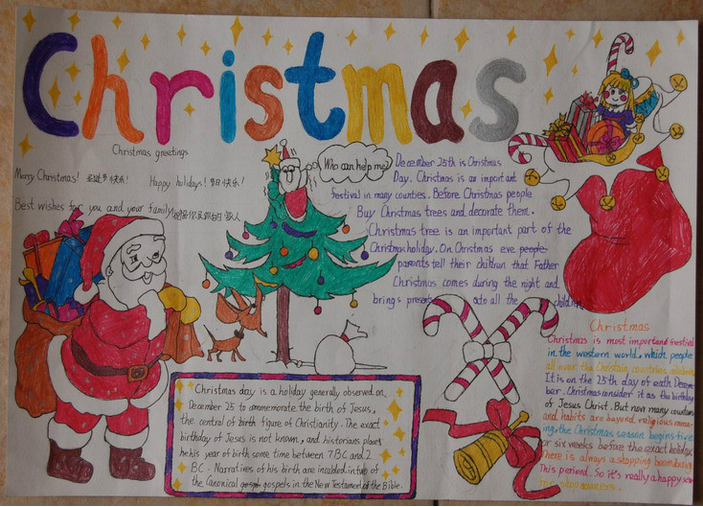 Christmas
Christmas greetings
Merry Christmas! 圣诞节快乐!
Happy holidays! 节日快乐!
Best wishes for you and your family
Who can help me?
December 25th is Christmas
Day. Christmas is an important
festival in many counties. Before Christmas people
Buy Christmas trees and decorate them.
Christmas tree is an important part of the
Christmas holiday. On Christmas eve people
parents tell their children that Father
Christmas comes during the night and
brings presents to all the children
Christmas day is a holiday generally observed on
December 25 to ommemorate the birth of Jesus,
the central of birth figure of Christianity. The exact
birthday of Jesus is not known, and historians place
his year of birth some time between 7 BC and 2
BC. Narratives of his birth are included in two of
the Canonical gospels in the New Testament of the Bible.
Christmas
Christmas is most important festival
in the western world, which people
all over the Christian countries celebrate
It is on the 25th day of each Decem-
ber. Christmas consider it as the birthday
of Jesus Christ. But now many countries
and habits are beyond religious mean-
ing, the Christmas season begins five
or six weeks before the exact holiday.
There is always a stopping boom during
This periend. So it's really a happy
for shop owners.